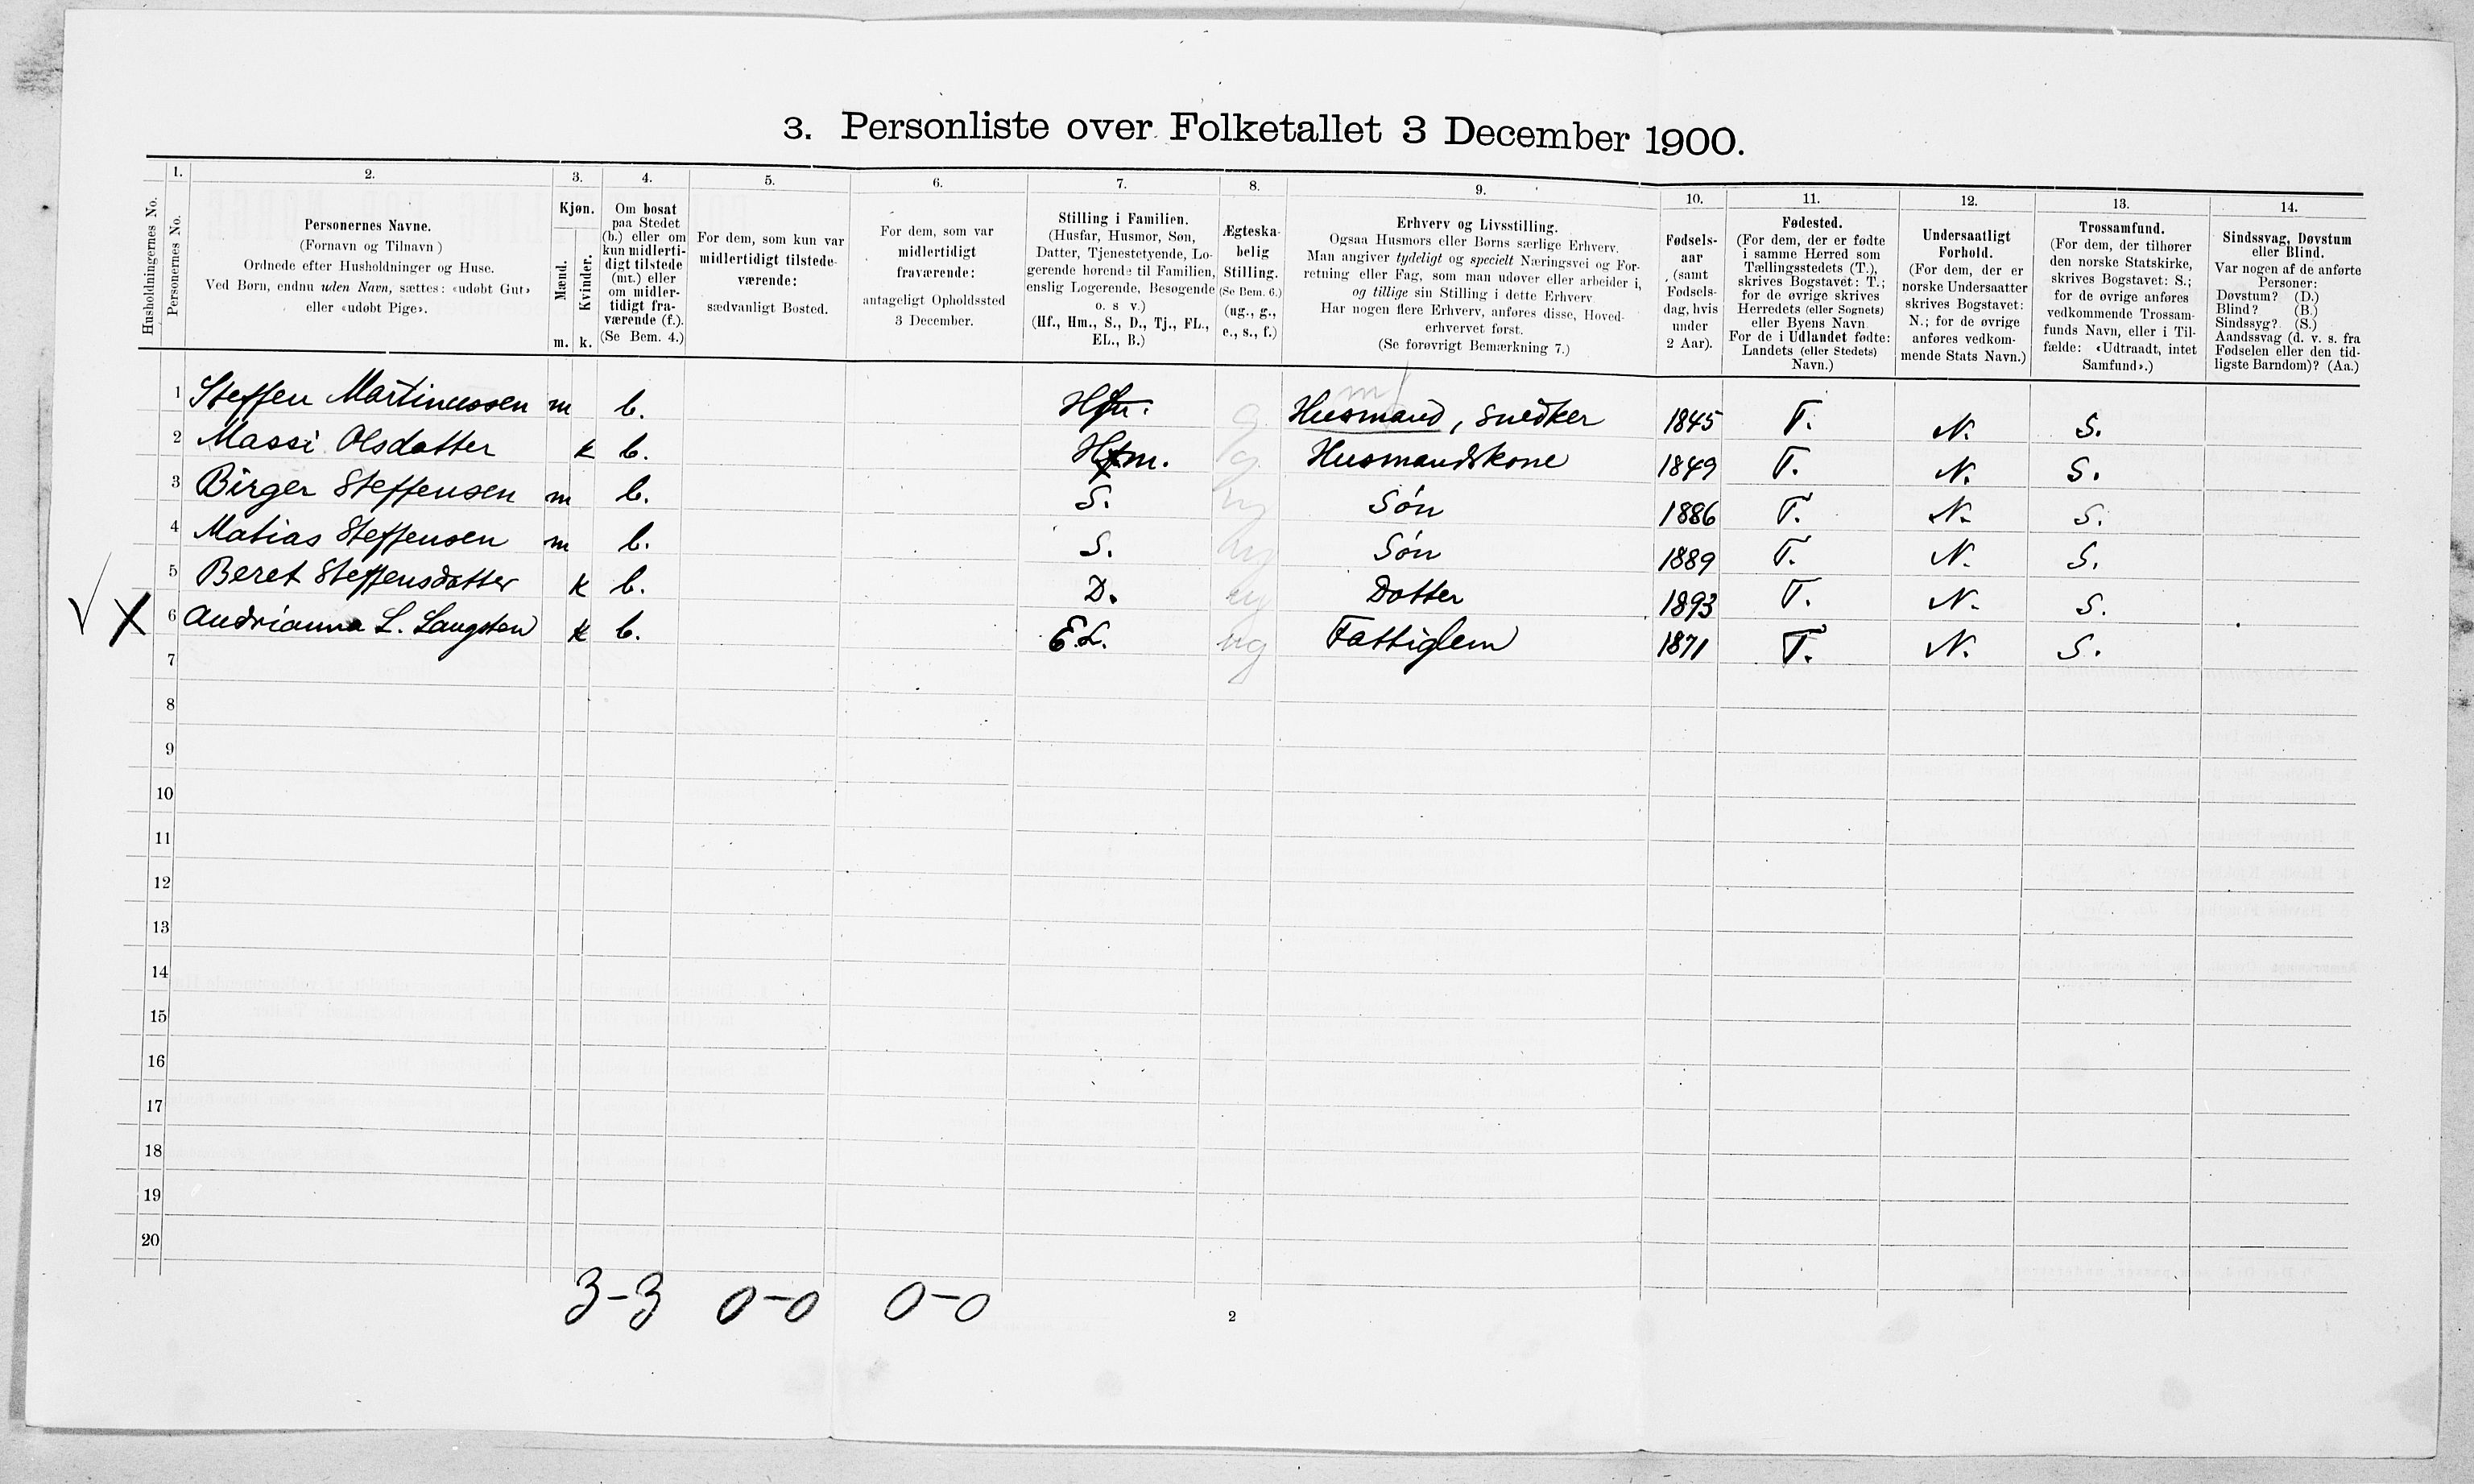 3. Personliste over Folketallet 3 December 1900.
Husholdningernes No.
1. Personernes No.
2. Personernes Navne.
(Fornavn og Tilnavn)
Ordnede efter Husholdninger og Huse.
Ved Børn, endnu uden Navn, sættes: «udøbt Gut»
eller «udøbt Pige».
3. Kjøn.
Mænd. Kvinder.
m. k.
4. Om bosat
paa Stedet
(b.) eller om
kun midlerti-
digt tilstede
(mt.) eller
om midler-
tidigt fra-
værende (f.).
(Se Bem. 4.)
5. For dem, som kun var
midlertidigt tilstede-
værende:
sædvanligt Bosted.
6. For dem, som var
midlertidigt
fraværende:
antageligt Opholdssted
3 December.
7. Stilling i Familien.
(Husfar, Husmor, Søn,
Datter, Tjenestetyende, Lo-
gerende hørende til Familien,
enslig Logerende, Besøgende
o. s v.)
(Hf., Hm., S., D., Tj., FL.,
EL., B.)
8. Ægteska-
belig
Stilling.
(Se Bem. 6.)
(ug., g.,
e., s., f.)
9. Erhverv og Livsstilling.
Ogsaa Husmors eller Børns særlige Erhverv.
Man angiver tydeligt og specielt Næringsvei og For-
retning eller Fag, som man udøver eller arbeider i,
og tillige sin Stilling i dette Erhverv.
Har nogen flere Erhverv, anføres disse, Hoved-
erhvervet først.
(Se forøvrigt Bemærkning 7.)
10. Fødsels-
aar
(samt
Fødsels-
dag, hvis
under
2 Aar).
11. Fødested.
(For dem, der er fødte
i samme Herred som
Tællingsstedets (T.),
skrives Bogstavet: T.;
for de øvrige skrives
Herredets (eller Sognets)
eller Byens Navn.
For de i Udlandet fødte:
Landets (eller Stedets)
Navn.)
12. Undersaatligt
Forhold.
(For dem, der er
norske Undersaatter
skrives Bogstavet:
N.; for de øvrige
anføres vedkom-
mende Stats Navn.)
13. Trossamfund.
(For dem, der tilhører
den norske Statskirke,
skrives Bogstavet: S.;
for de øvrige anføres
vedkommende Trossam-
funds Navn, eller i Til-
fælde: «Udtraadt, intet
Samfund».)
14. Sindssvag, Døvstum
eller Blind.
Var nogen af de anførte
Personer:
Døvstum? (D.)
Blind? (B.)
Sindssyg? (S.)
Aandssvag (d. v. s. fra
Fødselen eller den tid-
ligste Barndom)? (Aa.)
1 Steffen Martinussen m b. g Husmand, snedker 1845 T. N. S.
2 Massi Olsdatter k b. g Husmandskone 1849 T. N. S.
3 Birger Steffensen m b. S. ug Søn 1886 T. N. S.
4 Matias Steffensen m b. S. ug Søn 1889 T. N. S.
5 Beret Steffensdatter k b. D. ug Dotter 1893 T. N. S.
6 Andrianna L. Langsten k b. E.L. ug Fattiglem 1871 T. N. S.
7
8
9
10
11
12
13
14
15
16
17
18
19
20
3-3 0-0 0-0
2